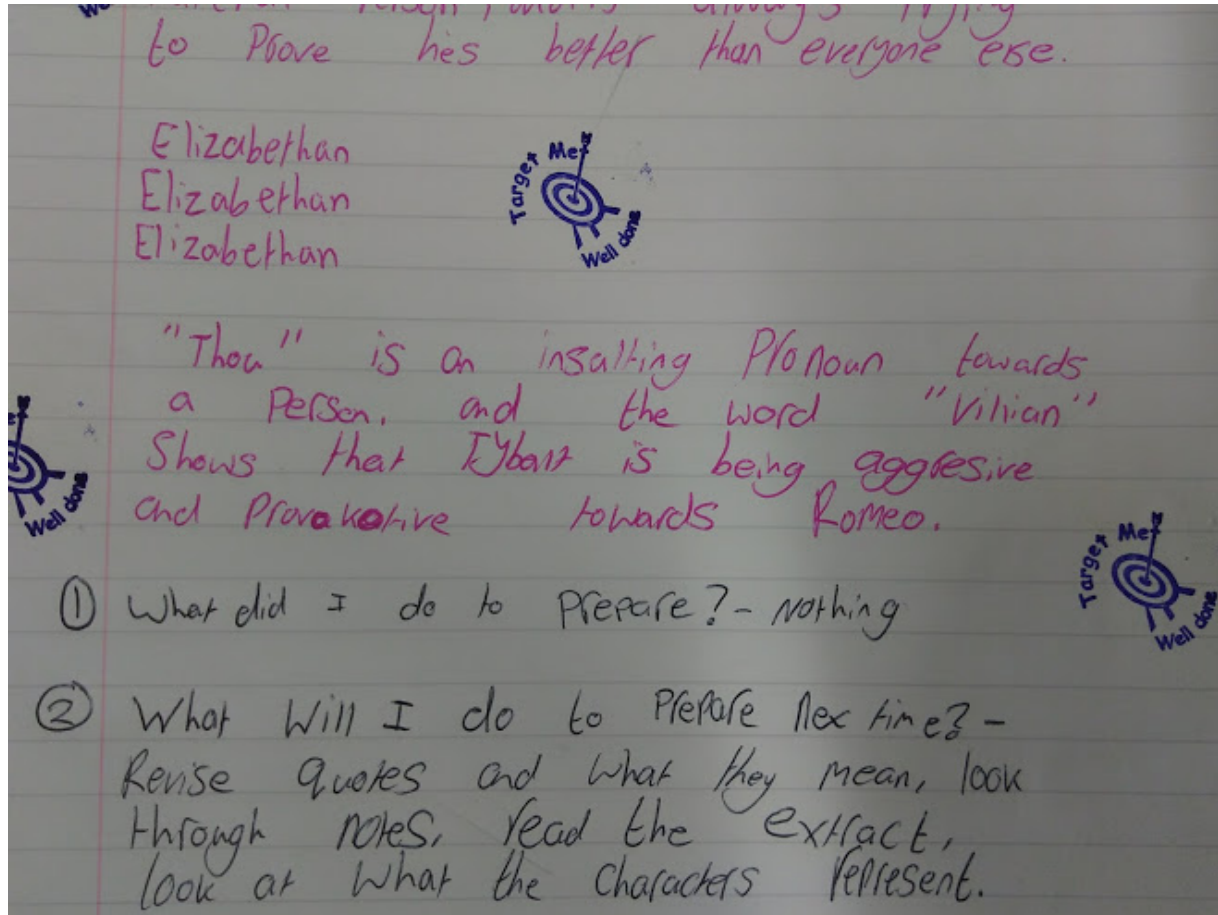 always trying
to Prove hes better than everyone else.
Elizabethan
Elizabethan
Elizabethan
Target Met
Well done
"Thou" is an insulting Pronoun towards
a Person, and the word "Vilian"
Shows that Tybalt is being aggresive
and Provokotive towards Romeo.
Well done
Target Met
Well done
① What did I do to prepare? - Nothing
② What Will I do to Prepare nex time? -
Revise quotes and what they mean, look
through notes, read the extract,
look at what the characters represent.